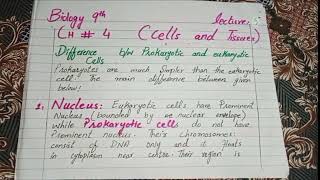 Biology 9th lecture: 5
CH # 4 (Cells and Tissues)
Difference b/w Prokaryotic and eukaryotic
Cells
Prokaryotes are much simpler than the eukaryotic
cells. The main difference between given
below:
1. Nucleus: Eukaryotic cells have Prominent
Nucleus (bounded by nuclear envelope)
while Prokaryotic cells do not have
Prominent nucleus. Their chromosomes
consist of DNA only and it floats
in cytoplasm near centre. Their region is